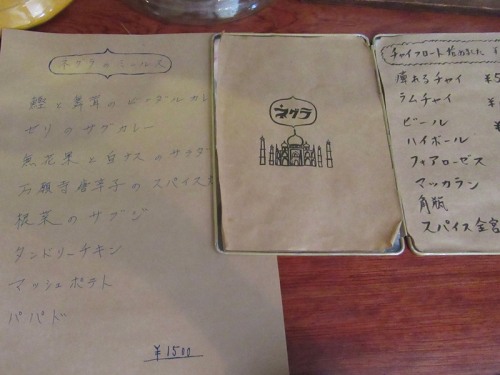 ネグラのミールス
鰹と舞茸のビンダルカレ
ゼリのサグカレー
無花果と白ナスのサラダ
万願寺唐辛子のスパイス
根菜のサブジ
タンドリーチキン
マッシュポテト
パパド
¥1500
ネグラ
チャイフロート始めました ¥
チャイ ¥5
ラムチャイ ¥
ビール ¥
ハイボール
フォアローゼス
マッカラン
角瓶
スパイス金宮